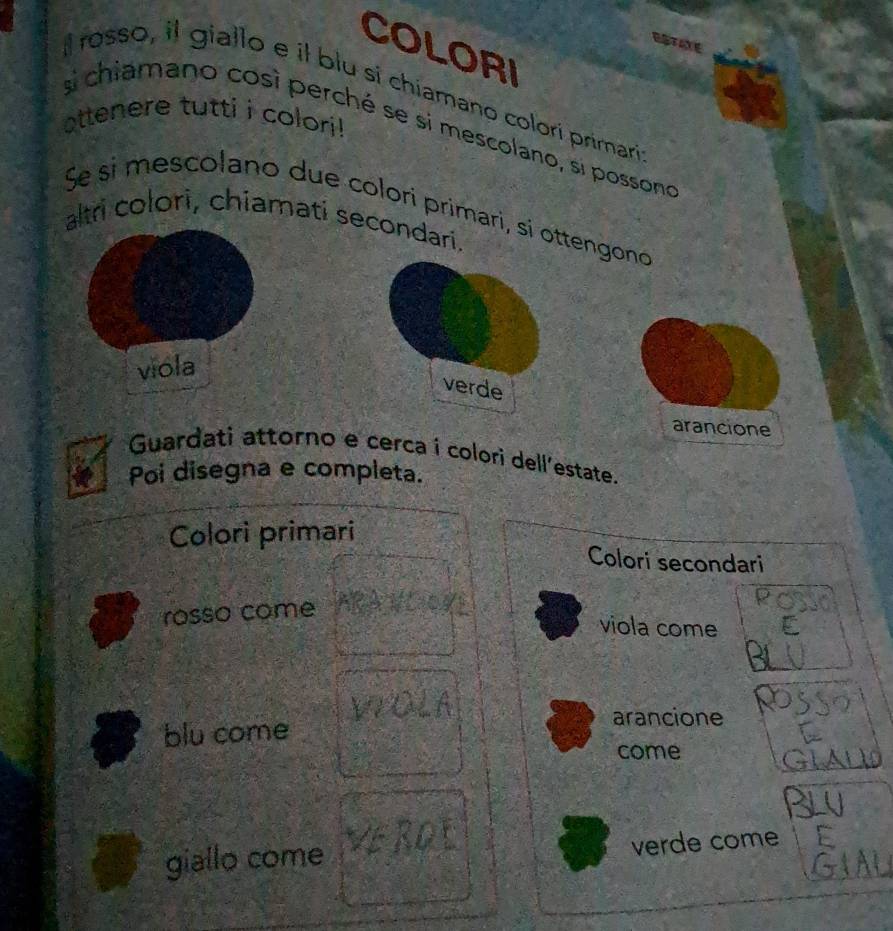 COLORI
ESTATE
Il rosso, il giallo e il blu si chiamano colori primari:
si chiamano così perché se si mescolano, si possono
ottenere tutti i colori!
Se si mescolano due colori primari, si ottengono
altri colori, chiamati secondari.
viola
verde
arancione
Guardati attorno e cerca i colori dell'estate.
Poi disegna e completa.
Colori primari
rosso come
ARANCIONE
blu come
VIOLA
giallo come
VERDE
Colori secondari
viola come
ROSSO
E
BLU
arancione
come
ROSSO
E
GIALLO
verde come
BLU
E
GIALL